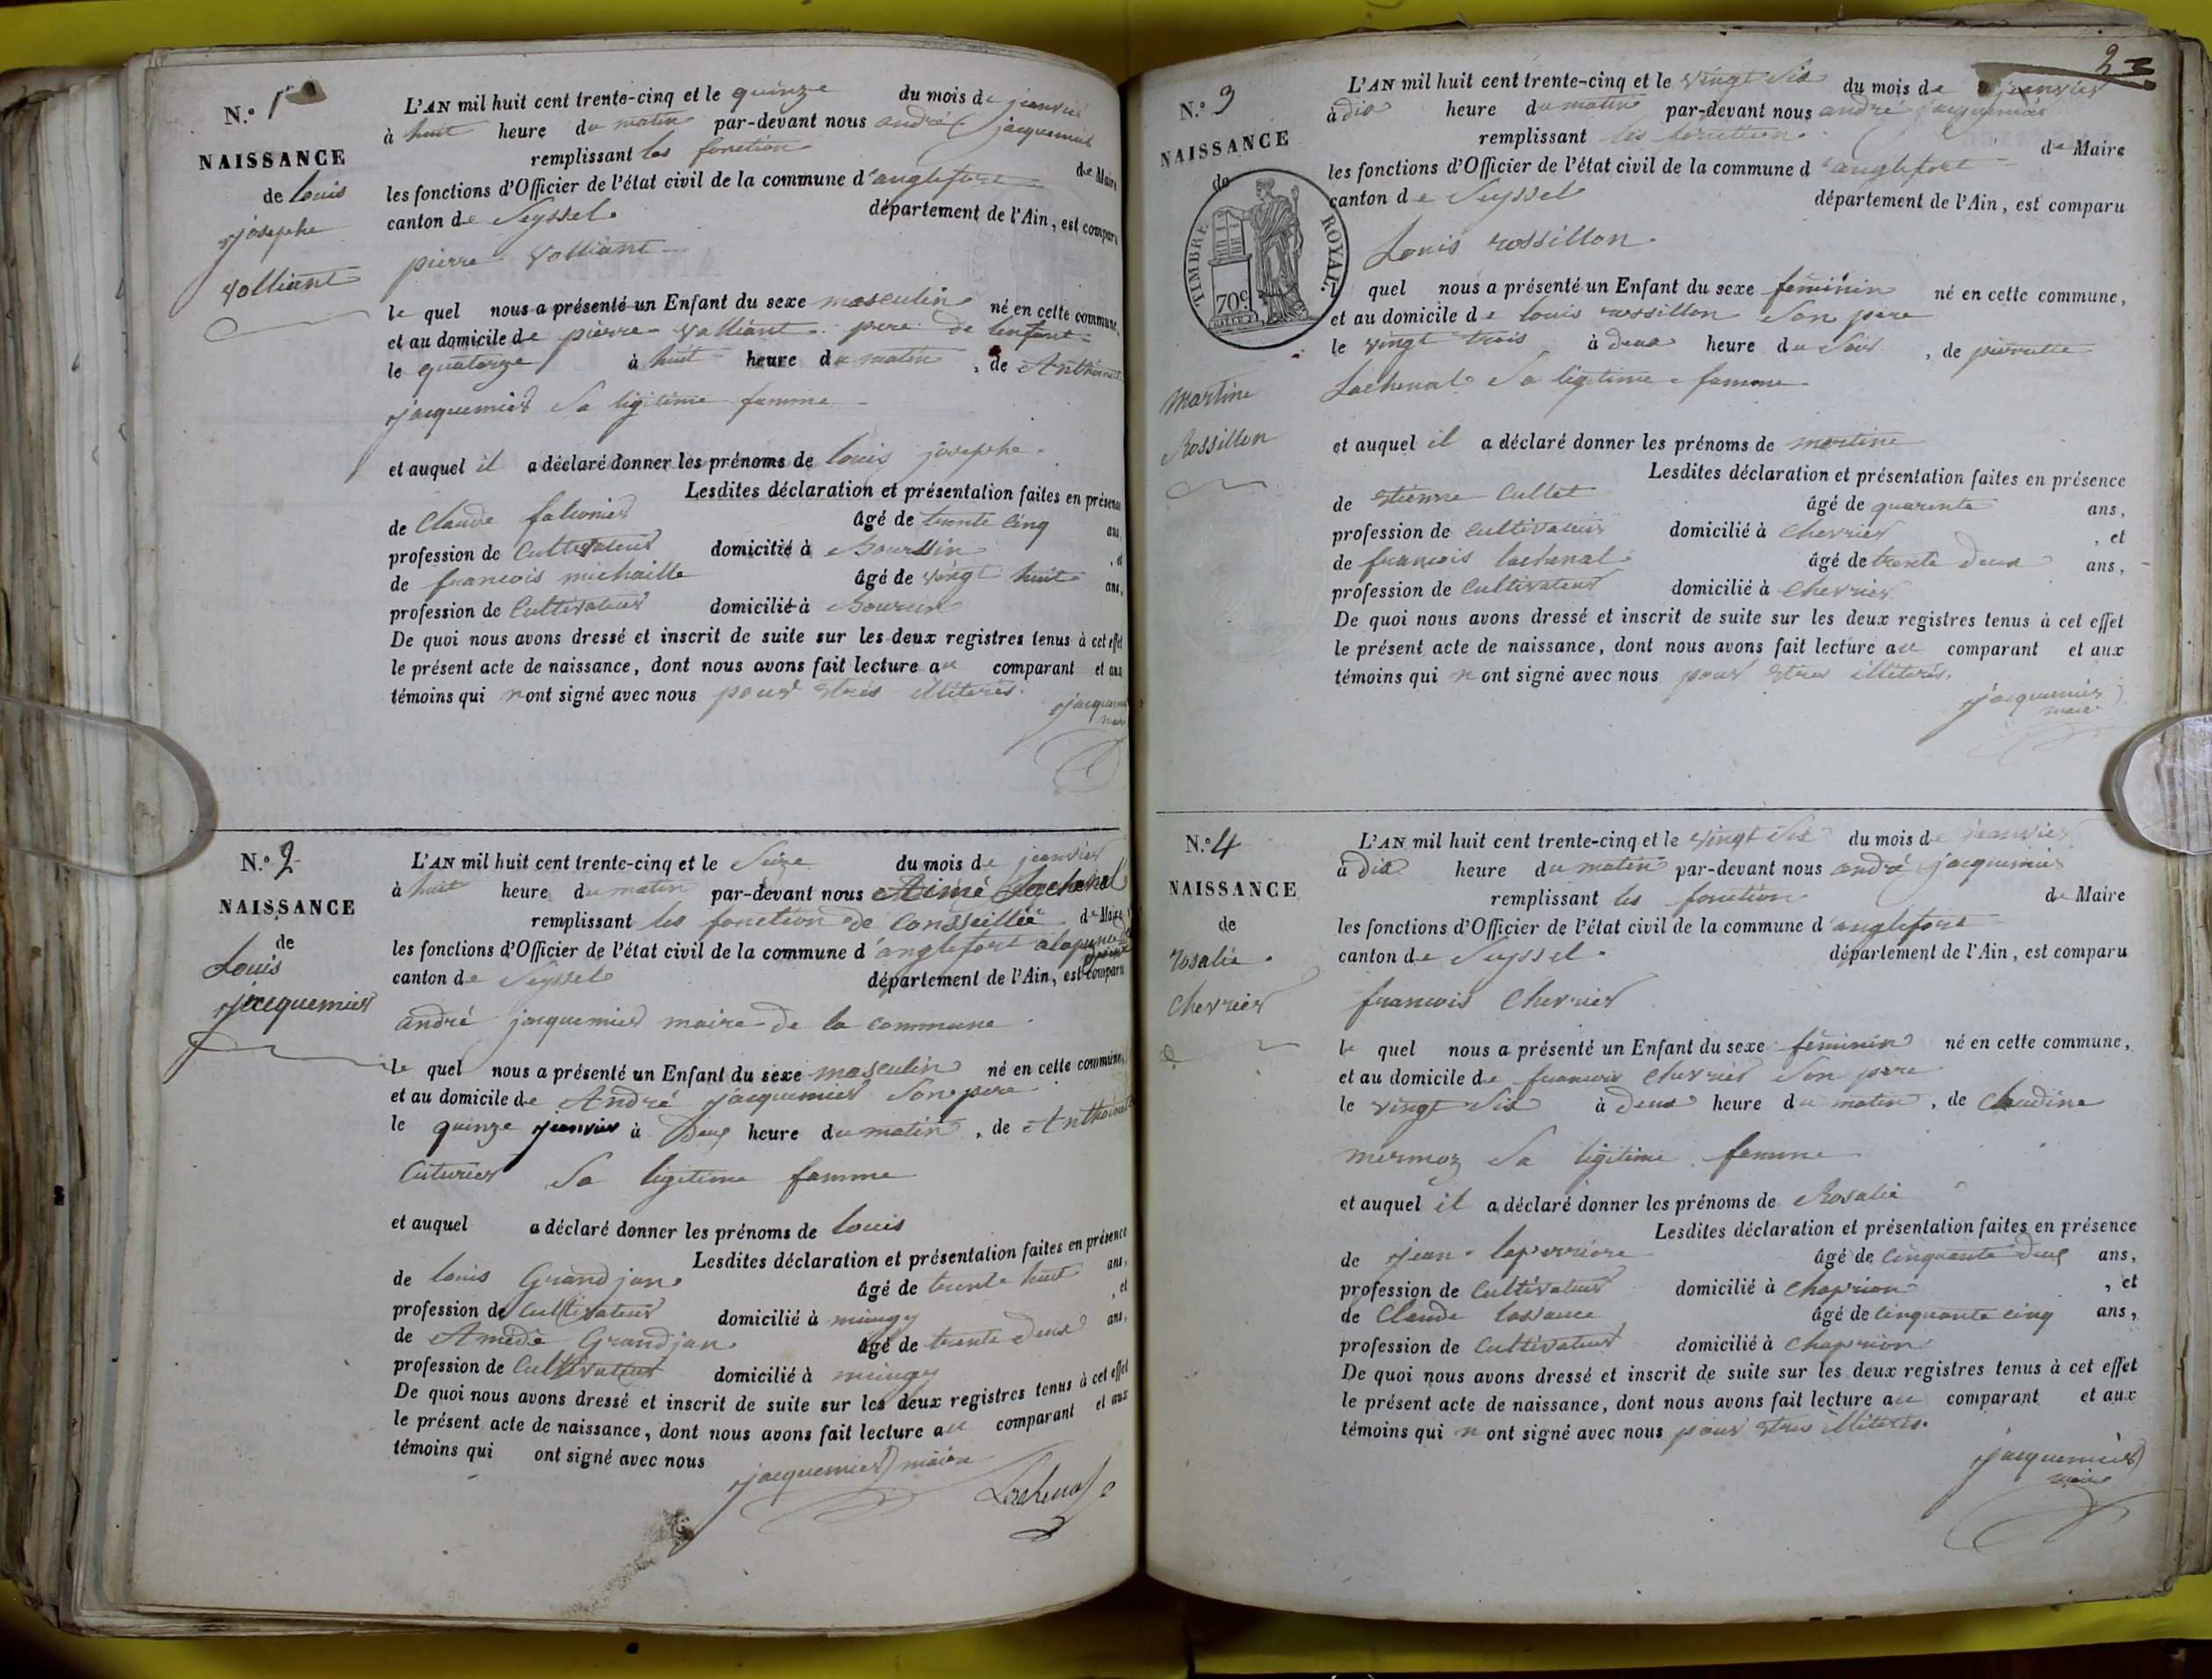 N.° 1
NAISSANCE
de louis
josephe
volliant
L'AN mil huit cent trente-cinq et le quinze du mois de janvier
à huit heure du matin par-devant nous andré jacquemier
remplissant les fonction de Maire
les fonctions d'Officier de l'état civil de la commune d'anglefort
canton de Seyssel département de l'Ain, est comparu
pierre volliant
le quel nous a présenté un Enfant du sexe masculin né en cette commune,
et au domicile de pierre volliant pere de lenfant
le quatorze à huit heure du matin, de Anthoinette
jacquemier sa ligitime famme
et auquel il a déclaré donner les prénoms de louis josephe
Lesdites déclaration et présentation faites en présence
de Claude falconier âgé de trente cinq ans,
profession de Cultivateur domicilié à Boursin, et
de francois michaille âgé de vingt huit ans,
profession de Cultivateur domicilié à Bourcin
De quoi nous avons dressé et inscrit de suite sur les deux registres tenus à cet effet
le présent acte de naissance, dont nous avons fait lecture au comparant et aux
témoins qui n'ont signé avec nous pour etres illiterés.
jacquemier
maire
N.° 2
NAISSANCE
de
Louis
jacquemier
L'AN mil huit cent trente-cinq et le Seize du mois de janvier
à huit heure du matin par-devant nous Aimé Lachenal
remplissant les fonction de Consseillié de Maire
les fonctions d'Officier de l'état civil de la commune d'anglefort
canton de Seyssel département de l'Ain, est comparu
andré jacquemier maire de la commune
le quel nous a présenté un Enfant du sexe masculin né en cette commune,
et au domicile de André jacquemier Son pere
le quinze janvier à Deux heure du matin, de Anthoinette
Cuturier Sa ligitime famme
et auquel a déclaré donner les prénoms de louis
Lesdites déclaration et présentation faites en présence
de louis Grandjan âgé de trente huit ans,
profession de Cultivateur domicilié à mieugy, et
de Amédé Grandjan âgé de trente deux ans,
profession de Cultivateur domicilié à mieugy
De quoi nous avons dressé et inscrit de suite sur les deux registres tenus à cet effet
le présent acte de naissance, dont nous avons fait lecture au comparant et aux
témoins qui ont signé avec nous
jacquemier maire
Lachenal
2
N.° 3
NAISSANCE
de
TIMBRE ROYAL
70c
martine
Rossillon
L'AN mil huit cent trente-cinq et le vingt six du mois de janvier
à dix heure du matin par-devant nous andré jacquemier
remplissant les fonction de Maire
les fonctions d'Officier de l'état civil de la commune d'anglefort
canton de Seyssel département de l'Ain, est comparu
Louis rossillon
quel nous a présenté un Enfant du sexe féminin né en cette commune,
et au domicile de louis rossillon Son pere
le vingt trois à deux heure du Soir, de pierrette
Lachenal Sa ligitime famme
et auquel il a déclaré donner les prénoms de martine
Lesdites déclaration et présentation faites en présence
de etienne Cullet âgé de quarente ans,
profession de Cultivateur domicilié à Chevrier, et
de francois lachenal âgé de trente deux ans,
profession de Cultivateur domicilié à Chevrier
De quoi nous avons dressé et inscrit de suite sur les deux registres tenus à cet effet
le présent acte de naissance, dont nous avons fait lecture au comparant et aux
témoins qui n'ont signé avec nous pour etres illiterés.
jacquemier
maire
N.° 4
NAISSANCE
de
rosalie
chevrier
L'AN mil huit cent trente-cinq et le vingt six du mois de janvier
à dix heure du matin par-devant nous andré jacquemier
remplissant les fonction de Maire
les fonctions d'Officier de l'état civil de la commune d'anglefort
canton de Seyssel département de l'Ain, est comparu
francois Chevrier
le quel nous a présenté un Enfant du sexe féminin né en cette commune,
et au domicile de francois chevrier Son pere
le vingt six à deux heure du matin, de Claudine
mermoz Sa ligitime famme
et auquel il a déclaré donner les prénoms de Rosalie
Lesdites déclaration et présentation faites en présence
de jean laperriere âgé de cinquante deux ans,
profession de Cultivateur domicilié à Chaprion, et
de Claude lassauce âgé de cinquante cinq ans,
profession de Cultivateur domicilié à Chaprion
De quoi nous avons dressé et inscrit de suite sur les deux registres tenus à cet effet
le présent acte de naissance, dont nous avons fait lecture au comparant et aux
témoins qui n'ont signé avec nous pour etres illiterés.
jacquemier
maire